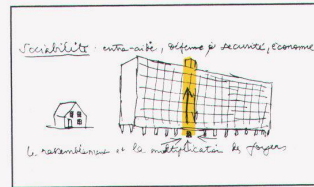 Sociabilité. entre-aide, défense & sécurité, économie
Le rassemblement et la multiplication de foyers